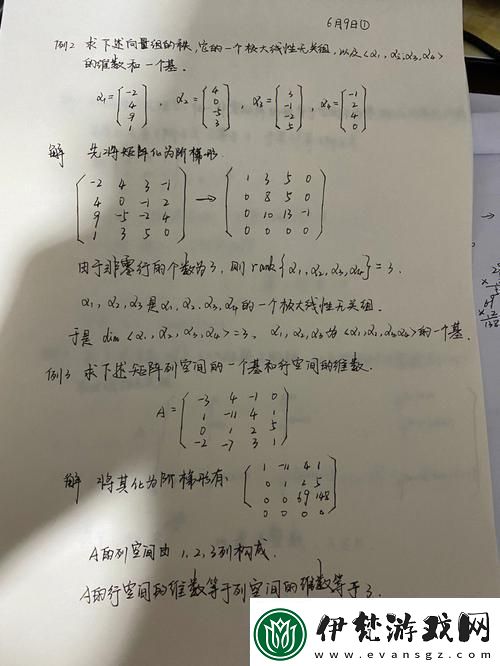 6月9日①
例2 求下述向量组的秩,它的一个极大线性无关组,以及<α₁,α₂,α₃,α₄>
的维数和一个基.
α₁=(-2 4 9 1), α₂=(4 0 -5 3), α₃=(3 -1 -2 5), α₄=(-1 2 4 0)
解 先将矩阵化为阶梯形.
-2 4 3 -1 → 1 3 5 0
4 0 -1 2 0 8 5 0
9 -5 -2 4 0 10 13 -1
1 3 5 0 0 0 0 0
由于非零行的个数为3,则rank{α₁,α₂,α₃,α₄}=3.
α₁,α₂,α₃是α₁,α₂,α₃,α₄的一个极大线性无关组.
于是 dim<α₁,α₂,α₃,α₄>=3, α₁,α₂,α₃为<α₁,α₂,α₃,α₄>的一个基.
例3 求下述矩阵列空间的一个基和行空间的维数.
A=
-3 4 -1 0
1 -11 4 1
0 1 2 5
-2 -7 3 1
解 将其化为阶梯形有
1 -11 4 1
0 1 2 5
0 0 69 148
0 0 0 0
A的列空间由1,2,3列构成.
A的行空间的维数等于列空间的维数等于3.
伊梵游戏网
www.evansgz.com